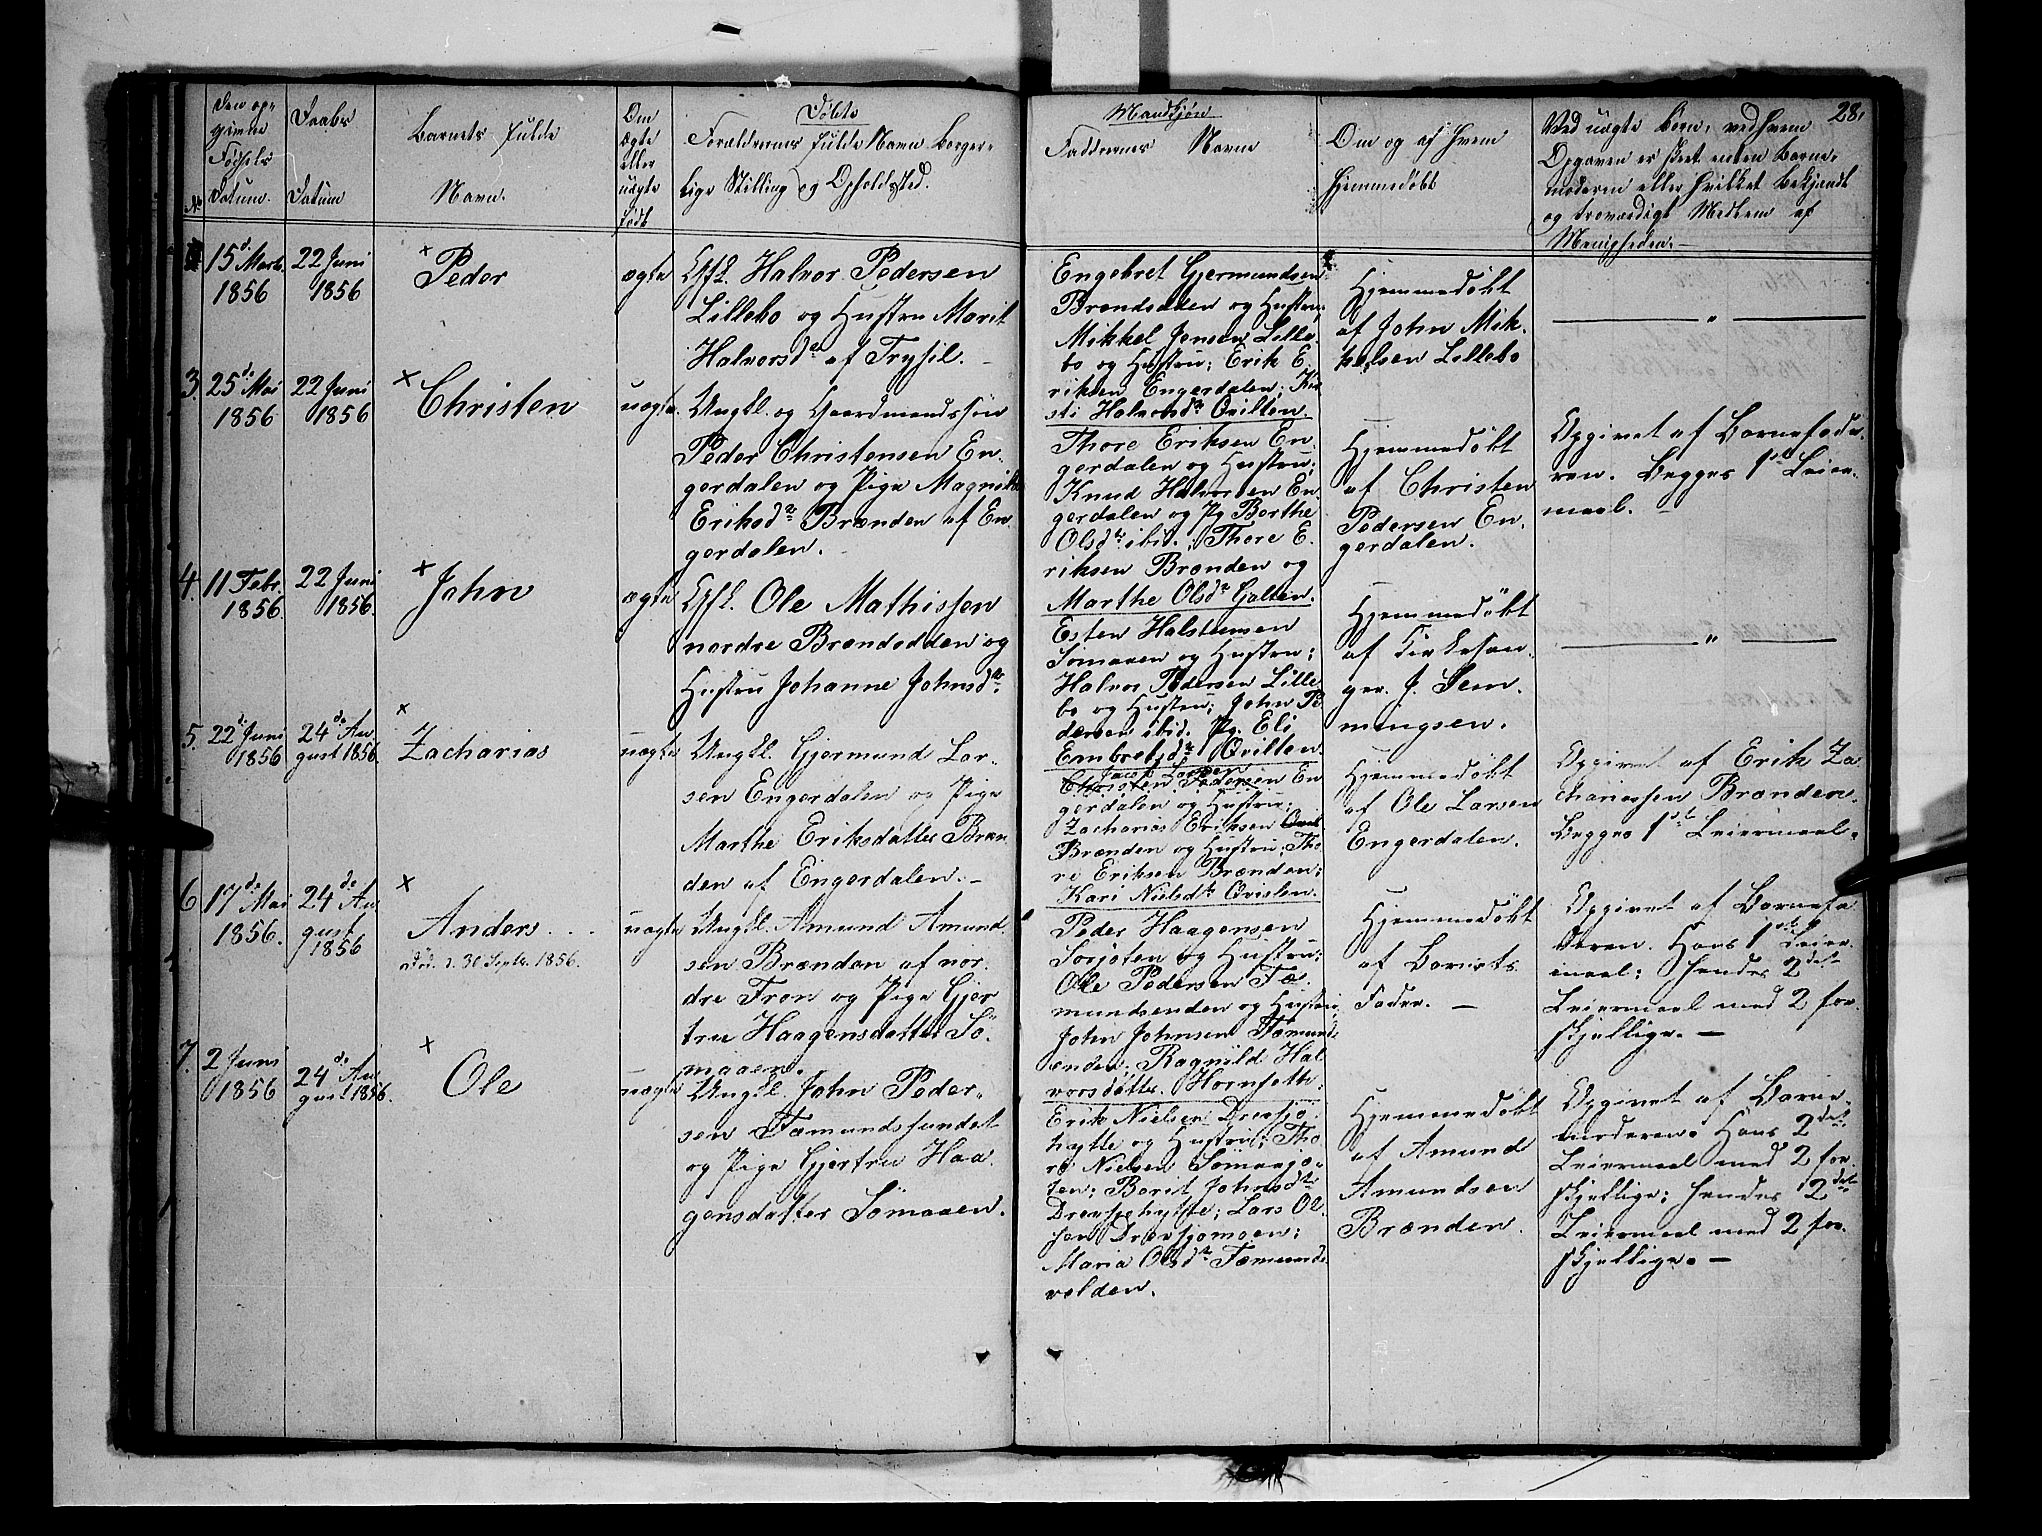 Døbte
Mandkjøn
28.
No
Den op-
givne
Fødsels
Datum.
Daabs
Datum
Barnets fulde
Navn.
Om
ægte
eller
uægte
født
Forældrenes fulde Navn Borger-
lige Stilling og Opholdssted.
Faddernes Navne
Om og af hvem
hjemmedøbt
Ved uægte Børn, ved hvem
Opgaven er skeet enten Barne-
moderen eller hvilket bekjendt
og troværdigt Medlem af
Menigheden.
15d. Marts
1856
22 Juni
1856
× Peder
ægte
Gift. Halvor Pedersen
Lillebo og Hustru Marit
Halvorsdr af Trysil.
Engebret Gjermundsen
Brændsdalen og Hustru;
Mikkel Jensen Lille-
bo og Hustru; Erik E-
riksen Engerdalen; Kir-
sti Halvorsdr Qvilten.
Hjemmedøbt
af John Mik-
kelsen Lillebo
— " —
3. 25de Mai
1856
22 Juni
1856
× Christen
uægte
Ungkl. og Gaardmandssøn
Peder Christensen En-
gerdalen og Pige Magnild
Eriksdr Brænden af En-
gerdalen.
Thore Eriksen En-
gerdalen og Hustru;
Knud Halvorsen En-
gerdalen og Pg Berthe
Olsdr ibid.; Thore E-
riksen Brænden og
Marthe Olsdr Galten.
Hjemmedøbt
af Christen
Pedersen En-
gerdalen.
Opgivet af Barnefade-
ren. Begges 1ste Leier-
maal.
4. 11 Febr.
1856.
22 Juni
1856.
× John
ægte
Gift. Ole Mathissen
nordre Brændodden og
Hustru Johanne Johnsdr.
Esten Halstensen
Sømaaen og Hustru;
Halvor Pedersen Lille-
bo og Hustru; John Pe-
dersen ibid. Pg. Eli
Embretsdr Qvilten.
Hjemmedøbt
af Kirkesan-
ger J. Sem-
mingsen.
— " —
5. 22de Juni
1856
24de Au-
gust 1856.
× Zacharias
uægte
Ungkl. Gjermund Lar-
sen Engerdalen og Pige
Marthe Eriksdatter Bræn-
den af Engerdalen.
Jacob Larsen
Christen Pedersen En-
gerdalen og Hustru;
Zacharias Eriksen
Brænden og Hustru; Tho-
re Eriksen Brænden;
Kari Nielsdtr Qvisten.
Hjemmedøbt
af Ole Larsen
Engerdalen.
Opgivet af Erik Za-
chariassen Brænden.
Begges 1ste Leiermaal.
6 17de Mai
1856.
24de Au-
gust
1856
× Anders
død d. 30 Septr. 1856.
uægte
Ungkl. Amund Amund-
sen Brænden af nor-
dre Fron og Pige Gjer-
tru Haagensdatter Sö-
maaen.
Peder Haagensen
Sorjoten og Hustru;
Ole Pedersen Fæ-
mundsenden og Hustru;
John Johnsen Fæmunds-
enden; Ragnild Hal-
vorsdatter Hornseth.
Hjemmedøbt
af Barnets
Fader.
Opgivet af Barnefa-
deren. Hans 1ste Leier-
maal; hendes 2det
Leiermaal med 2 for-
skjellige.
7. 2 Juni
1856
24de Au-
gust 1856.
× Ole
uægte
Ungkl. John Peder-
sen Fæmundssundet
og Pige Gjertru Haa-
gensdatter Sömaaen.
Erik Nielsen Drevsjø-
hytte og Hustru; Tho-
re Nielsen Sømaajo-
ten; Borit Johnsdtr
Drevsjøhytte; Lars Ol-
sen Drevsjømoen;
Maria Olsdr Fæmunds-
volden.
Hjemmedøbt
af Amund
Amundsen
Brænden.
Opgivet af Barne-
moderen. Hans 2det
Leiermaal med 2 for-
skjellige; hendes 2det
Leiermaal med 2 for-
skjellige.